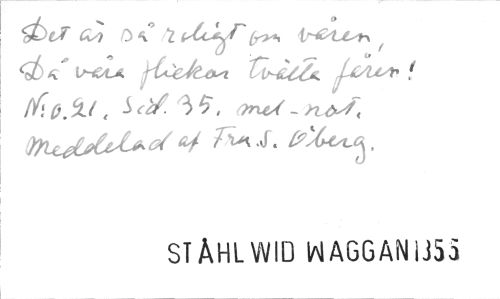 Det är så roligt om våren,
Då våra flickor tvätta fåren!
N:o. 21. Sid. 35. mel-not.
Meddelad af Fru. S. Öberg.
STÅHL WID WAGGAN 1355